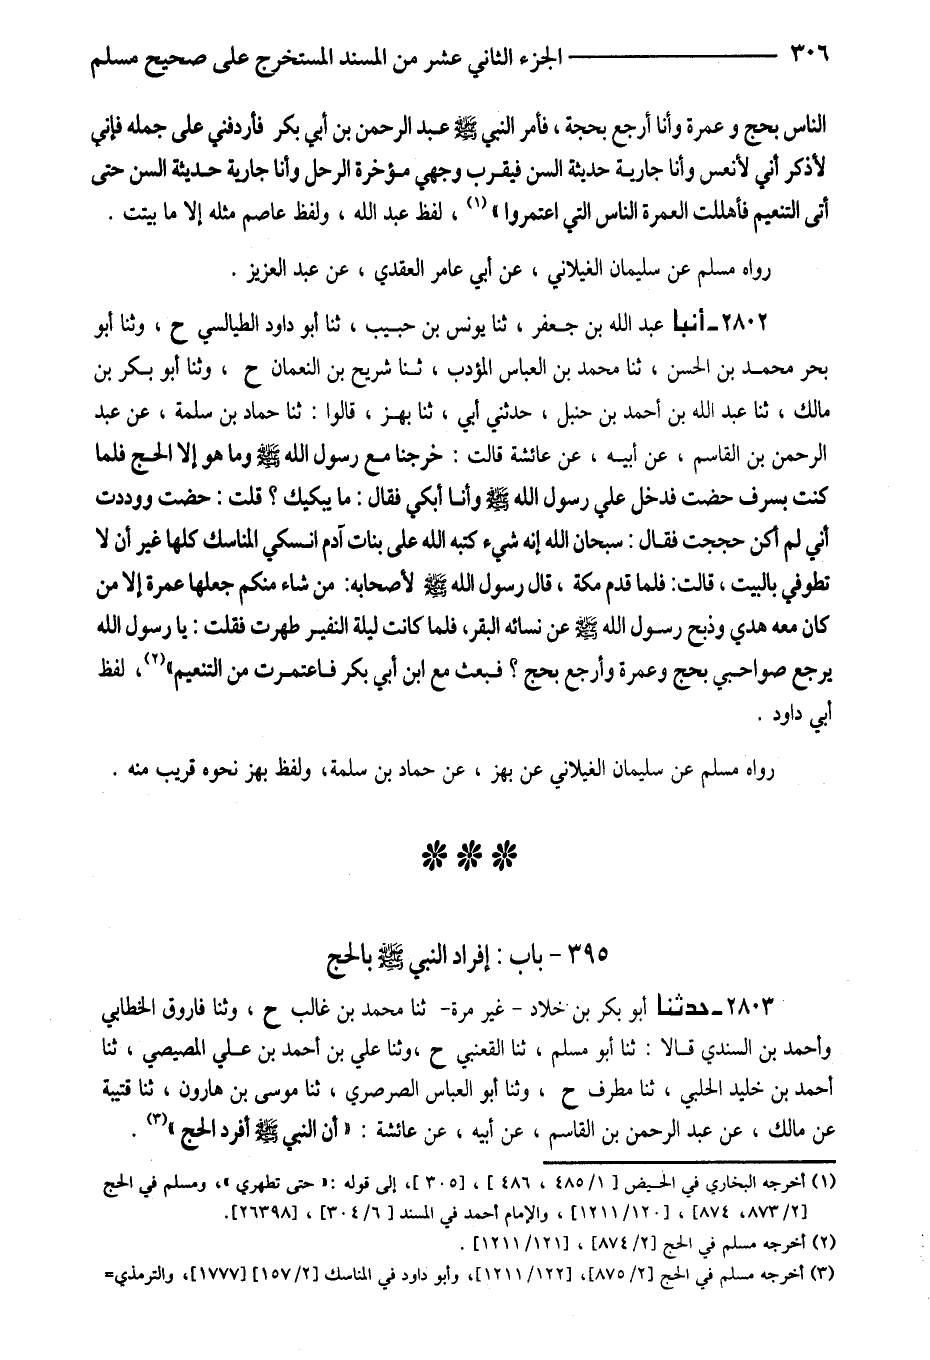 ٣٠٦ ــــــــــــ الجزء الثاني عشر من المسند المستخرج على صحيح مسلم
الناس بحج و عمرة وأنا أرجع بحجة ، فأمر النبي ﷺ عبد الرحمن بن أبي بكر فأردفني على جمله فإني
لأذكر أني لأنعس وأنا جارية حديثة السن فيقرب وجهي مؤخرة الرحل وأنا جارية حديثة السن حتى
أتى التنعيم فأهللت العمرة الناس التي اعتمروا »(١) ، لفظ عبد الله ، ولفظ عاصم مثله إلا ما بيتت .
رواه مسلم عن سليمان الغيلاني ، عن أبي عامر العقدي ، عن عبد العزيز .
٢٨٠٢ـ أنبا عبد الله بن جعفر ، ثنا يونس بن حبيب ، ثنا أبو داود الطيالسي ح ، وثنا أبو
بحر محمد بن الحسن ، ثنا محمد بن العباس المؤدب ، ثنا شريح بن النعمان ح ، وثنا أبو بكر بن
مالك ، ثنا عبد الله بن أحمد بن حنبل ، حدثني أبي ، ثنا بهز ، قالوا : ثنا حماد بن سلمة ، عن عبد
الرحمن بن القاسم ، عن أبيه ، عن عائشة قالت : خرجنا مع رسول الله ﷺ وما هو إلا الحج فلما
كنت بسرف حضت فدخل علي رسول الله ﷺ وأنا أبكي فقال : ما يبكيك ؟ قلت : حضت ووددت
أني لم أكن حججت فقال : سبحان الله إنه شيء كتبه الله على بنات آدم انسكي المناسك كلها غير أن لا
تطوفي بالبيت ، قالت: فلما قدم مكة ، قال رسول الله ﷺ لأصحابه: من شاء منكم جعلها عمرة إلا من
كان معه هدي وذبح رسول الله ﷺ عن نسائه البقر، فلما كانت ليلة النفير طهرت فقلت : يا رسول الله
يرجع صواحبي بحج وعمرة وأرجع بحج ؟ فبعث مع ابن أبي بكر فاعتمرت من التنعيم»(٢)، لفظ
أبي داود .
رواه مسلم عن سليمان الغيلاني عن بهز ، عن حماد بن سلمة، ولفظ بهز نحوه قريب منه .
٣٩٥ - باب : إفراد النبي ﷺ بالحج
٢٨٠٣ـ حدثنا أبو بكر بن خلاد - غير مرة- ثنا محمد بن غالب ح ، وثنا فاروق الخطابي
وأحمد بن السندي قالا : ثنا أبو مسلم ، ثنا القعنبي ح ،وثنا علي بن أحمد بن علي المصيصي ، ثنا
أحمد بن خليد الحلبي ، ثنا مطرف ح ، وثنا أبو العباس الصرصري ، ثنا موسى بن هارون ، ثنا قتيبة
عن مالك ، عن عبد الرحمن بن القاسم ، عن أبيه ، عن عائشة : « أن النبي ﷺ أفرد الحج »(٣) .
(١) أخرجه البخاري في الحيض [ ١/ ٤٨٥ ، ٤٨٦ ] ، [٣٠٥ ]، إلى قوله :« حتى تطهري »، ومسلم في الحج
[٢/ ٨٧٣، ٨٧٤] ، [١٢١١/١٢٠] ، والإمام أحمد في المسند [ ٦/ ٣٠٤] ، [٢٦٣٩٨].
(٢) أخرجه مسلم في الحج [٢/ ٨٧٤] ، [١٢١١/١٢١] .
(٣) أخرجه مسلم في الحج [٢/ ٨٧٥]، [١٢١١/١٢٢]، وأبو داود في المناسك [٢/ ١٥٧] [١٧٧٧]، والترمذي=